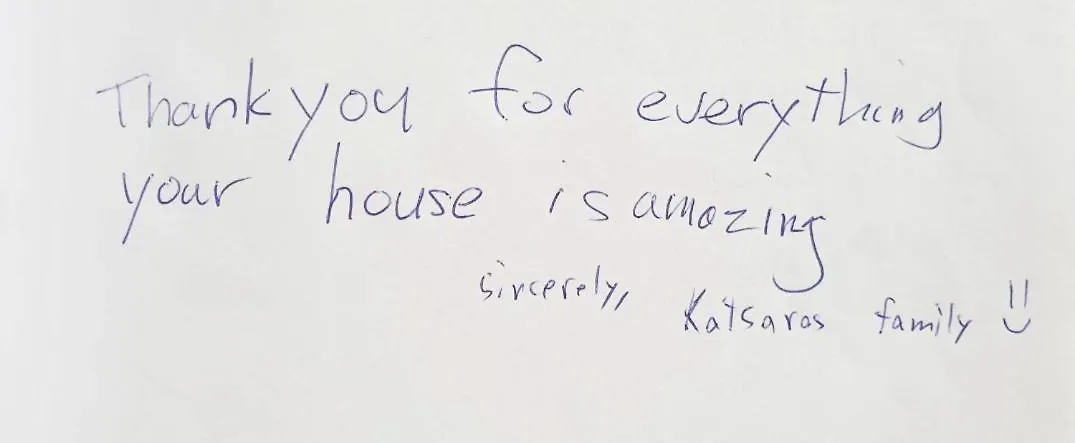 Thank you for everything
your house is amazing
sincerely, Katsaros family !!